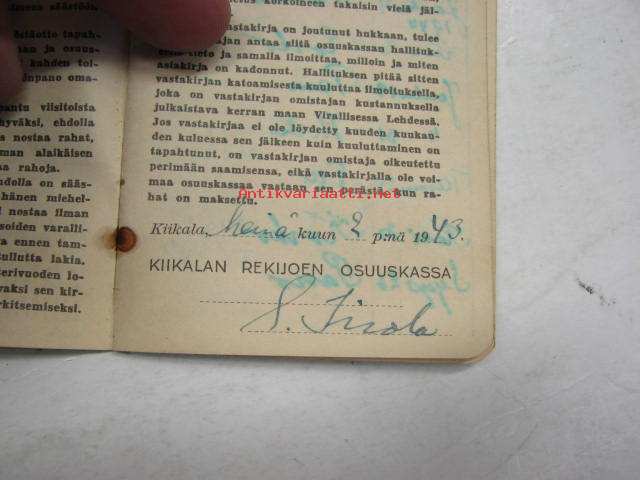 säästöön.
stäotto tapah-
man ja osuus-
kahden toi-
npano oma-
pantu viisitoista
hyväksi, ehdolla
nostaa rahat,
man alaikäisen
rahoja.
dolla on sääs-
hänen miehel-
nostaa ilman
soiden varalli-
va ennen tam-
tullutta lakia.
terivuoden lo-
vaksi sen kir-
rkitsemiseksi.
korkoineen takaisin vielä jäl-
vastakirja on joutunut hukkaan, tulee
ajan antaa siitä osuuskassan hallituk-
tieto ja samalla ilmoittaa, milloin ja miten
asiakirja on kadonnut. Hallituksen pitää sitten
vastakirjan katoamisesta kuuluttaa ilmoituksella,
joka on vastakirjan omistajan kustannuksella
julkaistava kerran maan Virallisessa Lehdessä.
Jos vastakirjaa ei ole löydetty kuuden kuukau-
den kuluessa sen jälkeen kuin kuuluttaminen on
tapahtunut, on vastakirjan omistaja oikeutettu
perimään saamisensa, eikä vastakirjalla ole voi-
maa osuuskassaa vastaan sen perästä, kun ra-
hat on maksettu.
Antikvariaatti.net
Kiikala, heinä kuun 2 p:nä 1943.
KIIKALAN REKIJOEN OSUUSKASSA